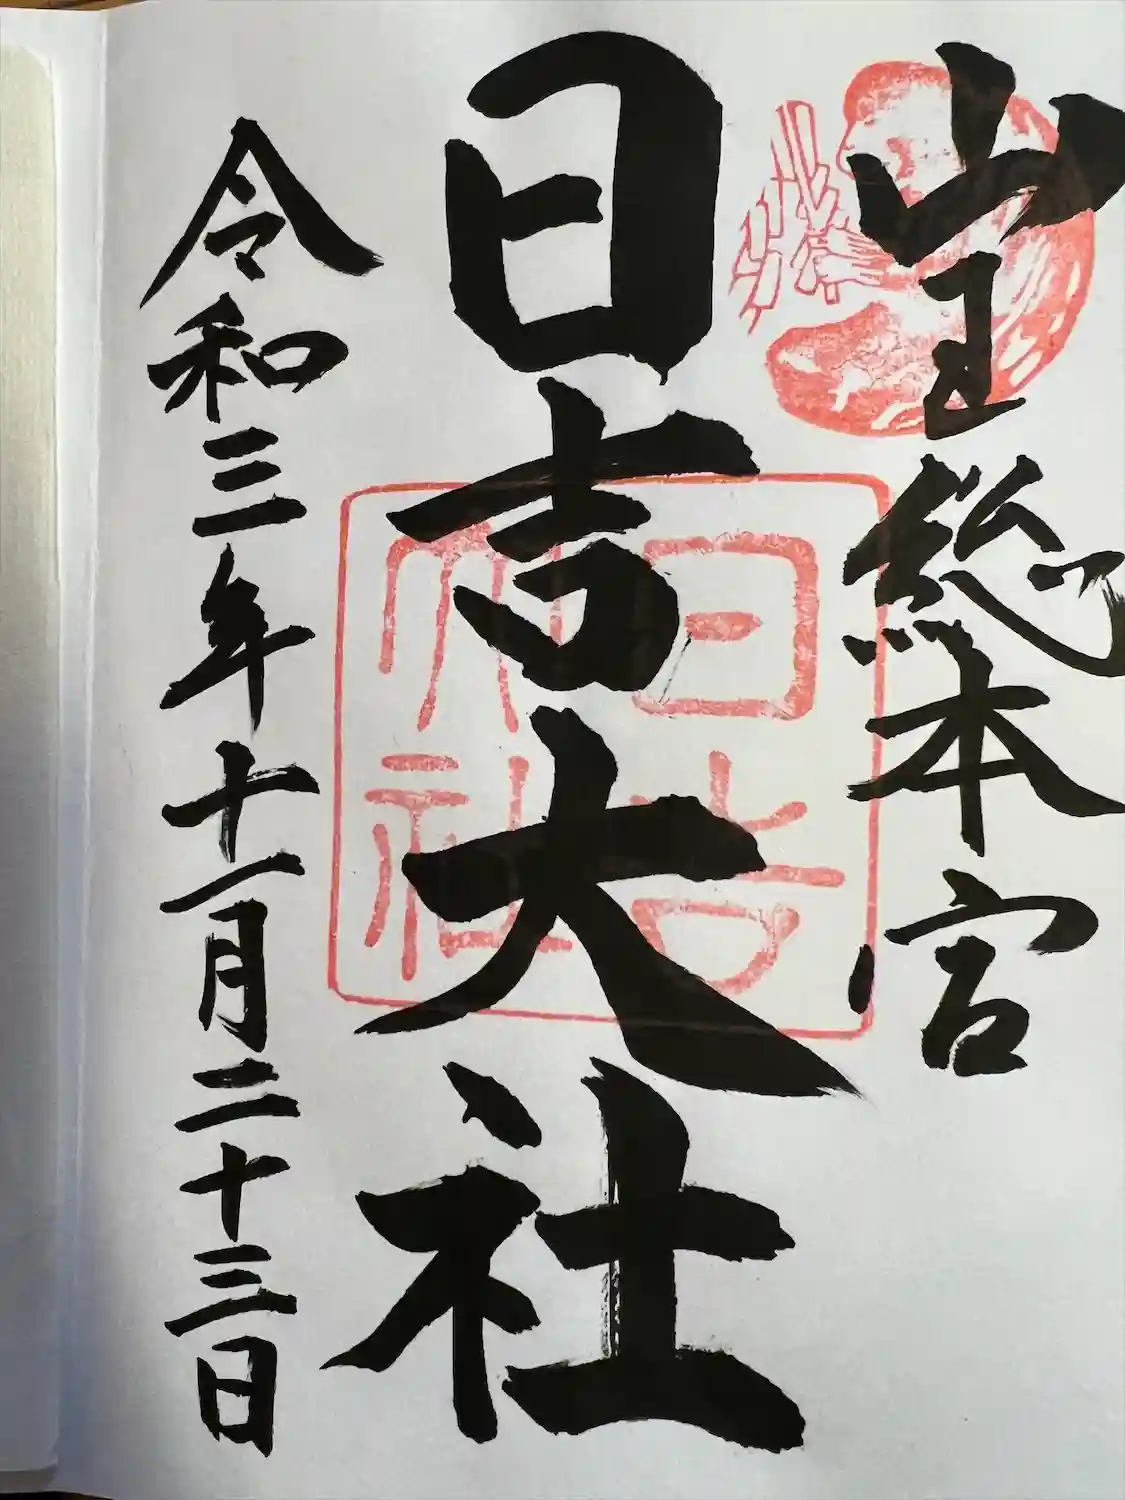 山王総本宮
日吉大社
日吉大社
令和三年十一月二十三日